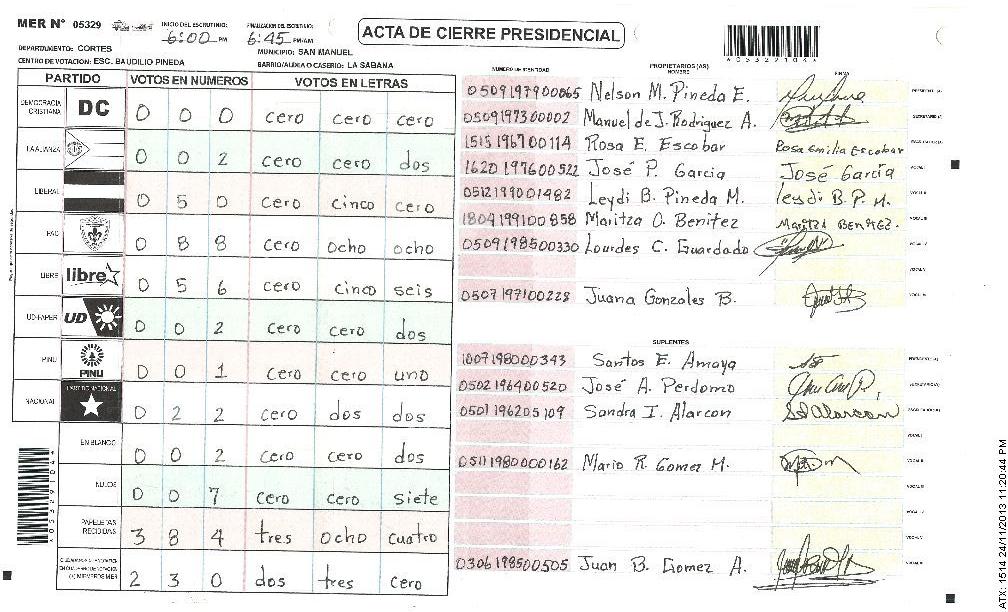 MER N° 05329
INICIO DEL ESCRUTINIO: 6:00 PM
FINALIZACION DEL ESCRUTINIO: 6:45 PM/AM
ACTA DE CIERRE PRESIDENCIAL
DEPARTAMENTO: CORTES
MUNICIPIO: SAN MANUEL
CENTRO DE VOTACION: ESC. BAUDILIO PINEDA
BARRIO/ALDEA O CASERIO: LA SABANA
PARTIDO VOTOS EN NUMEROS VOTOS EN LETRAS
DEMOCRACIA CRISTIANA DC 0 0 0 cero cero cero
LA ALIANZA 0 0 2 cero cero dos
LIBERAL 0 5 0 cero cinco cero
PAC 0 8 8 cero ocho ocho
LIBRE libre 0 5 6 cero cinco seis
UD-FAPER UD 0 0 2 cero cero dos
PINU PINU 0 0 1 cero cero uno
NACIONAL PARTIDO NACIONAL 0 2 2 cero dos dos
EN BLANCO 0 0 2 cero cero dos
NULOS 0 0 7 cero cero siete
PAPELETAS RECIBIDAS 3 8 4 tres ocho cuatro
2 3 0 dos tres cero
NUMERO DE IDENTIDAD PROPIETARIOS (AS) NOMBRE FIRMA
0509197900065 Nelson M. Pineda E. PRESIDENTE (A)
0509197300002 Manuel de J. Rodriguez A. SECRETARIO (A)
1515196700114 Rosa E. Escobar Rosa Emilia Escobar
1620197600522 José P. Garcia José García
0512199001482 Leydi B. Pineda M. leydi B. P. M.
1804199100858 Maritza O. Benitez Maritza Benitez.
0509198500330 Lourdes C. Guardado
0507197100228 Juana Gonzales B.
SUPLENTES
1007198000343 Santos E. Amaya
0502196400520 José A. Perdomo
0501196205109 Sandra I. Alarcon
0511198000162 Mario R. Gomez M.
0306198500505 Juan B. Gomez A.
ATX: 1514 24/11/2013 11:20:44 PM